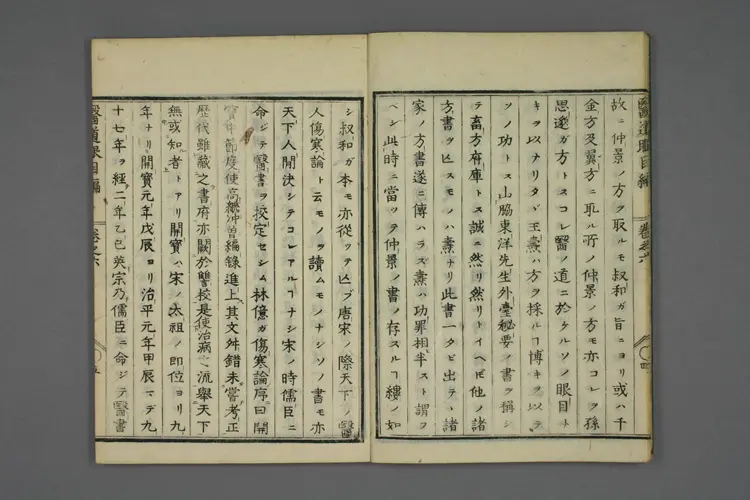 故ニ仲景ノ方ヲ取ルモ叔和ガ旨ニヨリ或ハ千
金方及翼方ニ取ル所ノ仲景ノ方モ亦コレヲ孫
思邈ガ方トスコレ醫ノ道ニ於ケルソノ眼目ナ
キヲ以ナリタヾ王燾ハ方ヲ採ルヿ博キヲ以テ
ソノ功トス山脇東洋先生外臺秘要ノ書ヲ稱シ
テ畜方府庫トス誠ニ然リ然リトイヘ𪜈他ノ諸
方書ヲ亡スモノハ燾ナリ此書一タビ出テヽ諸
家ノ方書遂ニ傳ハラズ燾ハ功罪相半スト謂ヲ
ベシ此時ニ當ツテ仲景ノ書ノ存スルヿ縷ノ如
醫道眼目編 卷之六 四
シ叔和ガ本モ亦從ツテ亡ブ唐宋ノ際天下ノ醫
人傷寒論ト云モノヲ讀ムモノナシソノ書モ亦
天下人間決シテコレアルヿナシ宋ノ時儒臣ニ
命ジテ醫書ヲ校定セシム林億ガ傷寒論序曰開
寶中節度使高繼冲曽編錄進上其文舛錯未嘗考正
歴代雖藏之書府亦闕於讐校是使治病之流舉天下
無或知者トアリ開寶ハ宋ノ太祖ノ即位ヨリ九
年ナリ開寶元年戊辰ヨリ治平元年甲辰マデ九
十七年ヲ經二年乙巳英宗乃儒臣ニ命ジテ醫書
醫道眼目編 卷之六 五